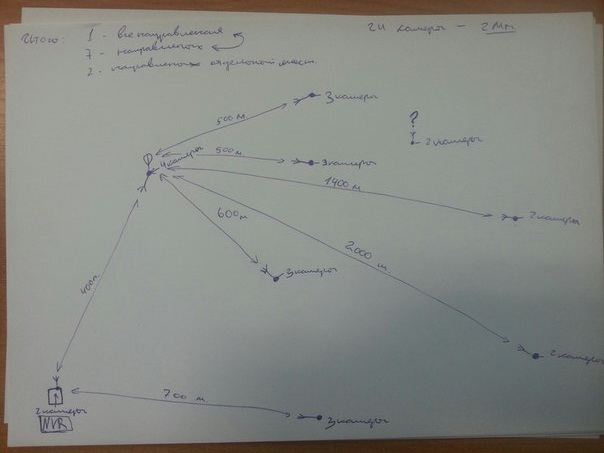 Итого: 1 - всенаправленая
7 - направленых
2 - направленых отдельной
24 камеры - 2 Мп
500 м
3 камеры
?
2 камеры
4 камеры
500 м
3 камеры
1400 м
2 камеры
600 м
3 камеры
2000 м
2 камеры
400 м
700 м
3 камеры
2 камеры
NVR